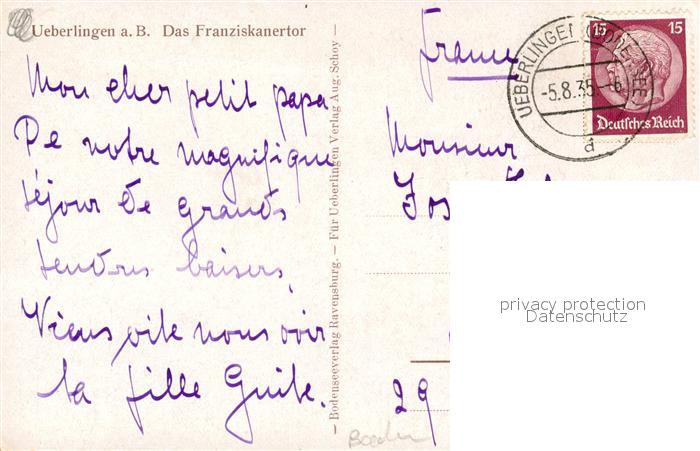 Ueberlingen a. B. Das Franziskanertor
Mon cher petit papa
De notre magnifique
séjour de grands
tendres baisers.
Viens vite nous voir
ta fille Guite.
— Bodenseeverlag Ravensburg. — Für Ueberlingen Verlag Aug. Schoy —
France
Monsieur
29
UEBERLINGEN (BODENSEE)
-5.8.35.-6
d
15 15
Deutsches Reich
privacy protection
Datenschutz